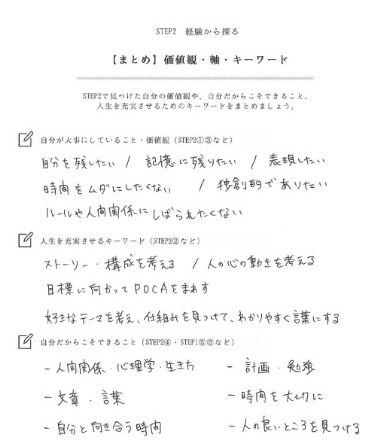 STEP2 経験から探る
【まとめ】価値観・軸・キーワード
STEP2で見つけた自分の価値観や、自分だからこそできること、
人生を充実させるためのキーワードをまとめましょう。
自分が大事にしていること・価値観（STEP2①③など）
自分を残したい / 記憶に残りたい / 表現したい
時間をムダにしたくない / 独創的でありたい
ルールや人間関係にしばられたくない
人生を充実させるキーワード（STEP2②など）
ストーリー・構成を考える / 人の心の動きを考える
目標に向かってPDCAをまわす
好きなテーマを考え、仕組みを見つけて、わかりやすく言葉にする
自分だからこそできること（STEP2④・STEP1⑤⑥など）
- 人間関係・心理学・生き方 - 計画・勉強
- 文章・言葉 - 時間を大切に
- 自分と向き合う時間 - 人の良いところを見つける